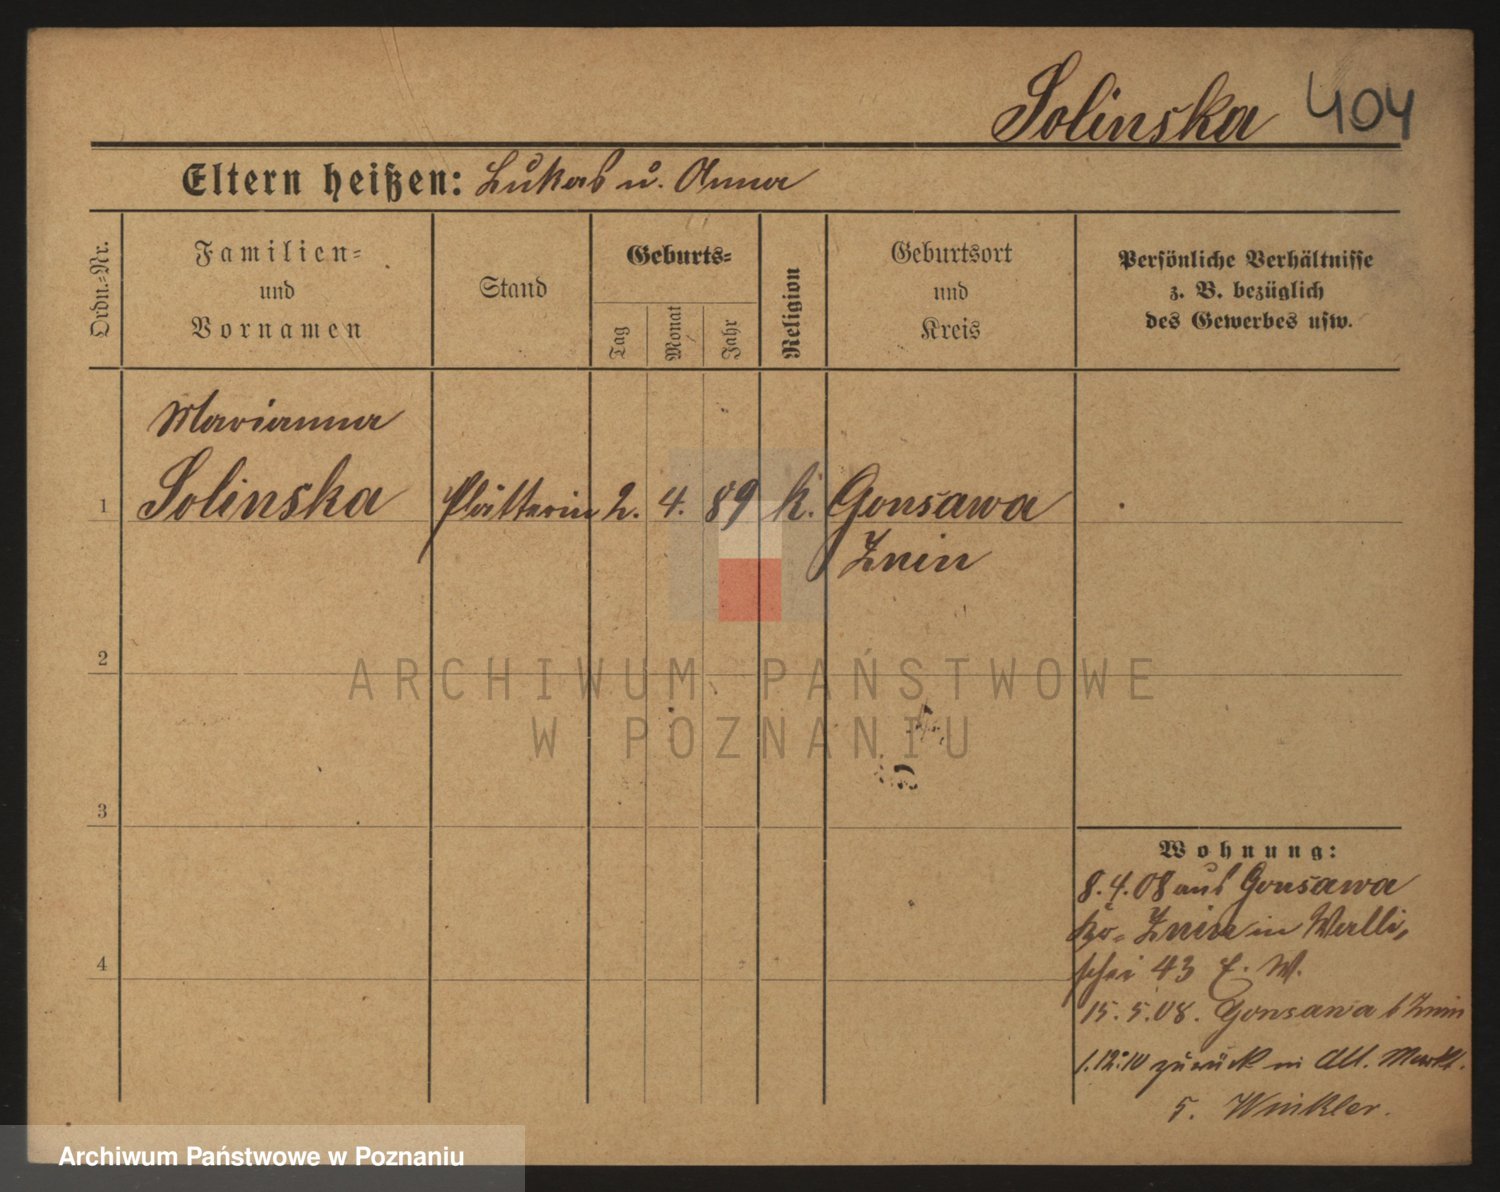 Solinska 404
Eltern heißen: Lukas u. Anna
Ordn.-Nr.
Familien-
und
Vornamen
Stand
Geburts-
Tag
Monat
Jahr
Religion
Geburtsort
und
Kreis
Persönliche Verhältnisse
z. B. bezüglich
des Gewerbes usw.
Marianna
1 Solinska Plätterin 2. 4. 89 k. Gonsawa
Znin
2
ARCHIWUM PAŃSTWOWE
W POZNANIU
3
Wohnung:
8.4.08 aus Gonsawa
Znin in Walli-
4
schei 43 W.
15.5.08. Gonsawa b Znin
1.12.10 zurück in Alt. Markt.
5. Winkler.
Archiwum Państwowe w Poznaniu